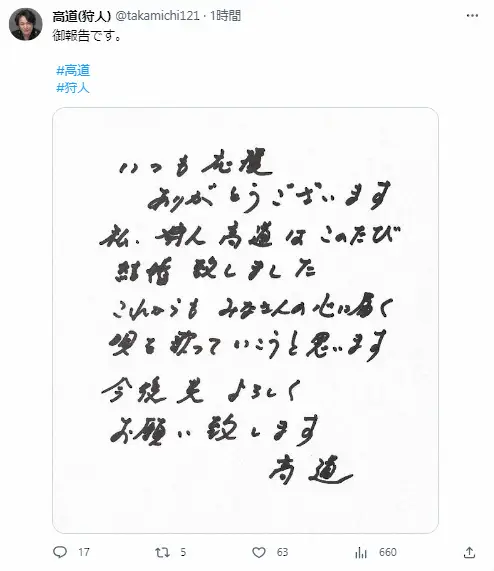 高道(狩人) @takamichi121・1時間
御報告です。
#高道
#狩人
いつも応援
ありがとうございます
私、狩人 高道は このたび
結婚 致しました
これからも みなさんの心に届く
唄を 歌って いこうと思います
今後共 よろしく
お願い致します
高道
17 5 63 660